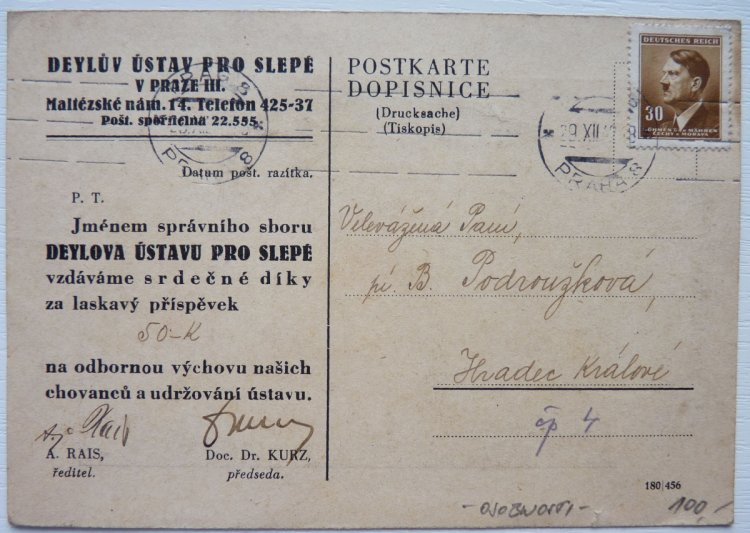 DEYLŮV ÚSTAV PRO SLEPÉ
V PRAZE III.
Maltézské nám. 14. Telefón 425-37
Pošt. spořitelna 22.555
Datum pošt. razítka.
P. T.
Jménem správního sboru
DEYLOVA ÚSTAVU PRO SLEPÉ
vzdáváme srdečné díky
za laskavý příspěvek
50-K
na odbornou výchovu našich
chovanců a udržování ústavu.
A. RAIS,
ředitel.
Doc. Dr. KURZ,
předseda.
POSTKARTE
DOPISNICE
(Drucksache)
(Tiskopis)
DEUTSCHES REICH
30
BÖHMEN UND MÄHREN
ČECHY A MORAVA
PRAHA 8
29.XII
PRAHA 8
Velevážená Paní,
pí. B. Podroužková,
Hradec Králové
čp 4
180/456
-OSOBNOSTI-
100,-